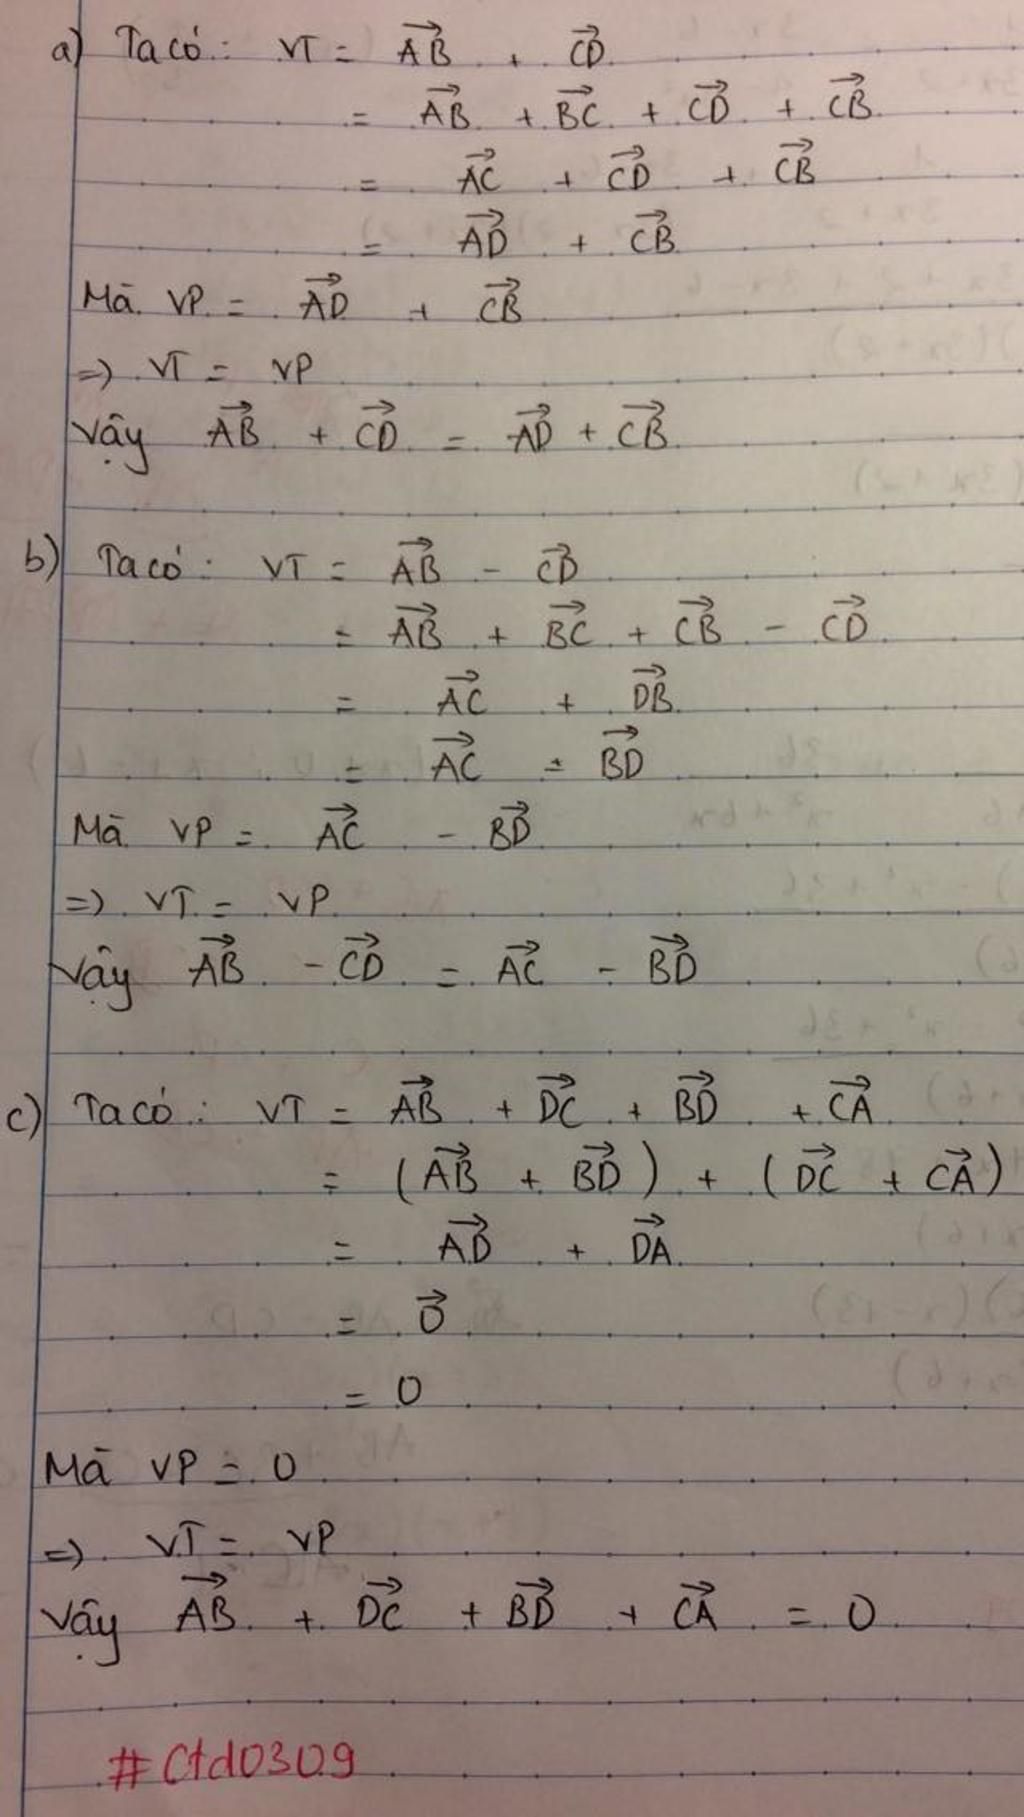 a) Ta có: VT = $\overrightarrow{AB}$ + $\overrightarrow{CD}$
= $\overrightarrow{AB}$ + $\overrightarrow{BC}$ + $\overrightarrow{CD}$ + $\overrightarrow{CB}$
= $\overrightarrow{AC}$ + $\overrightarrow{CD}$ + $\overrightarrow{CB}$
= $\overrightarrow{AD}$ + $\overrightarrow{CB}$
Mà VP = $\overrightarrow{AD}$ + $\overrightarrow{CB}$
=> VT = VP
Vậy $\overrightarrow{AB}$ + $\overrightarrow{CD}$ = $\overrightarrow{AD}$ + $\overrightarrow{CB}$
b) Ta có: VT = $\overrightarrow{AB}$ - $\overrightarrow{CD}$
= $\overrightarrow{AB}$ + $\overrightarrow{BC}$ + $\overrightarrow{CB}$ - $\overrightarrow{CD}$
= $\overrightarrow{AC}$ + $\overrightarrow{DB}$
= $\overrightarrow{AC}$ - $\overrightarrow{BD}$
Mà VP = $\overrightarrow{AC}$ - $\overrightarrow{BD}$
=> VT = VP
Vậy $\overrightarrow{AB}$ - $\overrightarrow{CD}$ = $\overrightarrow{AC}$ - $\overrightarrow{BD}$
c) Ta có: VT = $\overrightarrow{AB}$ + $\overrightarrow{DC}$ + $\overrightarrow{BD}$ + $\overrightarrow{CA}$
= ($\overrightarrow{AB}$ + $\overrightarrow{BD}$) + ($\overrightarrow{DC}$ + $\overrightarrow{CA}$)
= $\overrightarrow{AD}$ + $\overrightarrow{DA}$
= $\overrightarrow{0}$
= 0
Mà VP = 0
=> VT = VP
Vậy $\overrightarrow{AB}$ + $\overrightarrow{DC}$ + $\overrightarrow{BD}$ + $\overrightarrow{CA}$ = 0
#Ctd0309